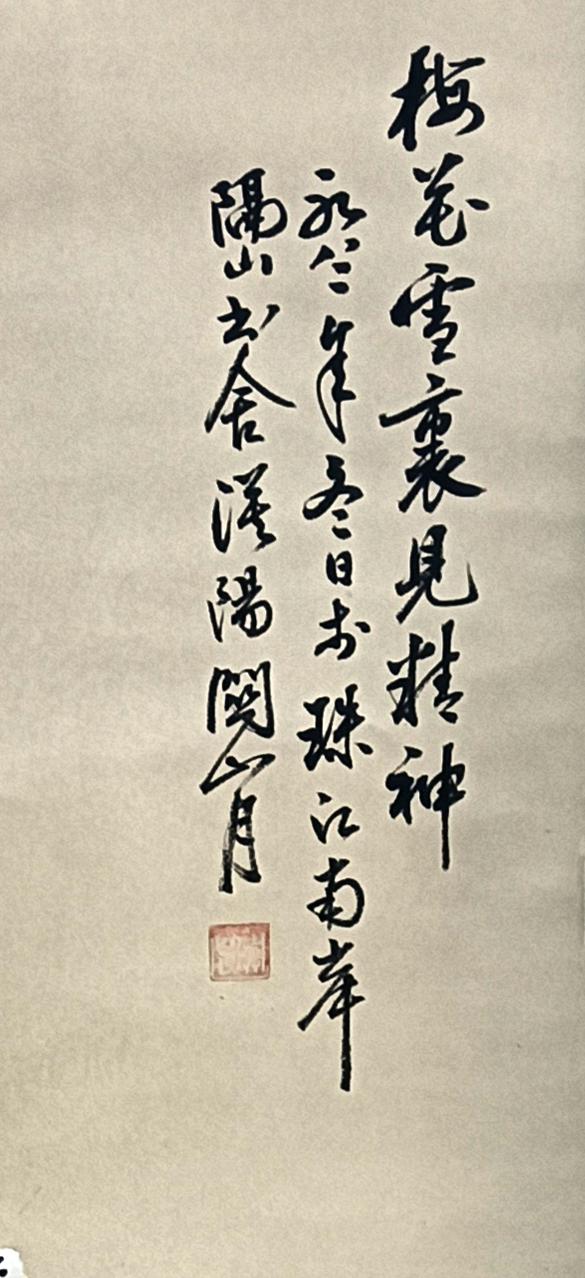 梅花雪裏見精神
年冬日於珠江南岸
隔山書舍漠陽關山月